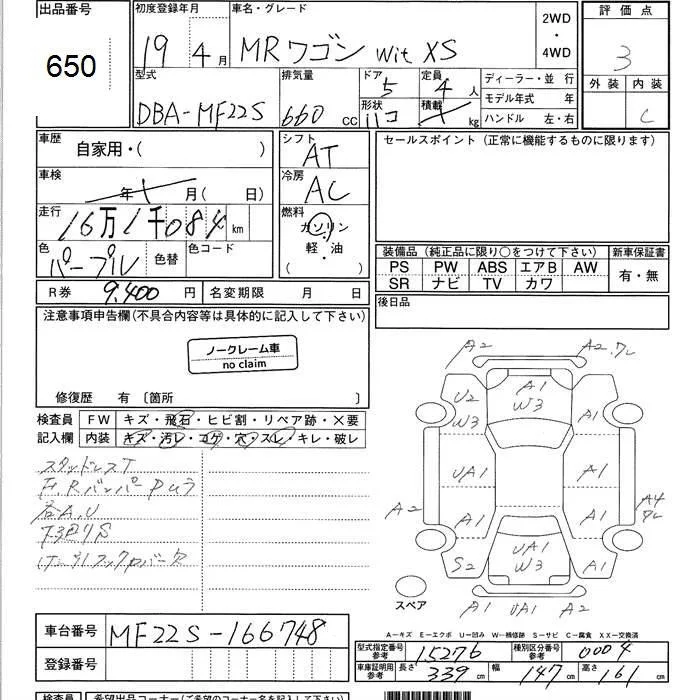 出品番号 初度登録年月 車名・グレード 2WD・4WD 評価点
650
19年 4月 MRワゴン wit XS 3
型式 排気量 ドア 定員 ディーラー・並 行 外装 内装
DBA-MF22S 660cc 5 4人 モデル年式 年 C
形状 ハコ 積載 kg ハンドル 左・右
車歴 自家用・( ) シフト AT セールスポイント (正常に機能するものに限ります)
車検 年 月 ( 日) 冷房 AC
走行 16万1千084km 燃料 ガソリン 軽・油 ( )
色 パープル 色替 色コード
装備品 (純正品に限り○をつけて下さい) 新車保証書
PS PW ABS エアB AW 有・無
SR ナビ TV カワ
R券 9,400円 名変期限 月 日 後日品
注意事項申告欄(不具合内容等は具体的に記入して下さい)
ノークレーム車
no claim
修復歴 有 〔箇所 〕
検査員 FW キズ・飛石・ヒビ割・リペア跡・×要
記入欄 内装 キズ・汚レ・コゲ・穴・スレ・キレ・破レ
スタッドレスT
F.Rバンパー
各A.U
A2 A2
U2 A1
W3 W3 A1
UA1 A1
A2 A4
A1 A1
S2 UA1 A1
W3
A1 UA1 A2
スペア
A-キズ E-エクボ U-凹み W-補修跡 S-サビ C-腐食 XX-交換済
車台番号 MF22S-166748
型式指定番号 参考 15276 種別区分番号 参考 0004
登録番号
車庫証明用 参考 長さ 339cm 幅 147cm 高さ 161cm
検査員 希望出品コーナー(ご希望のコーナー名を記入して下さい)